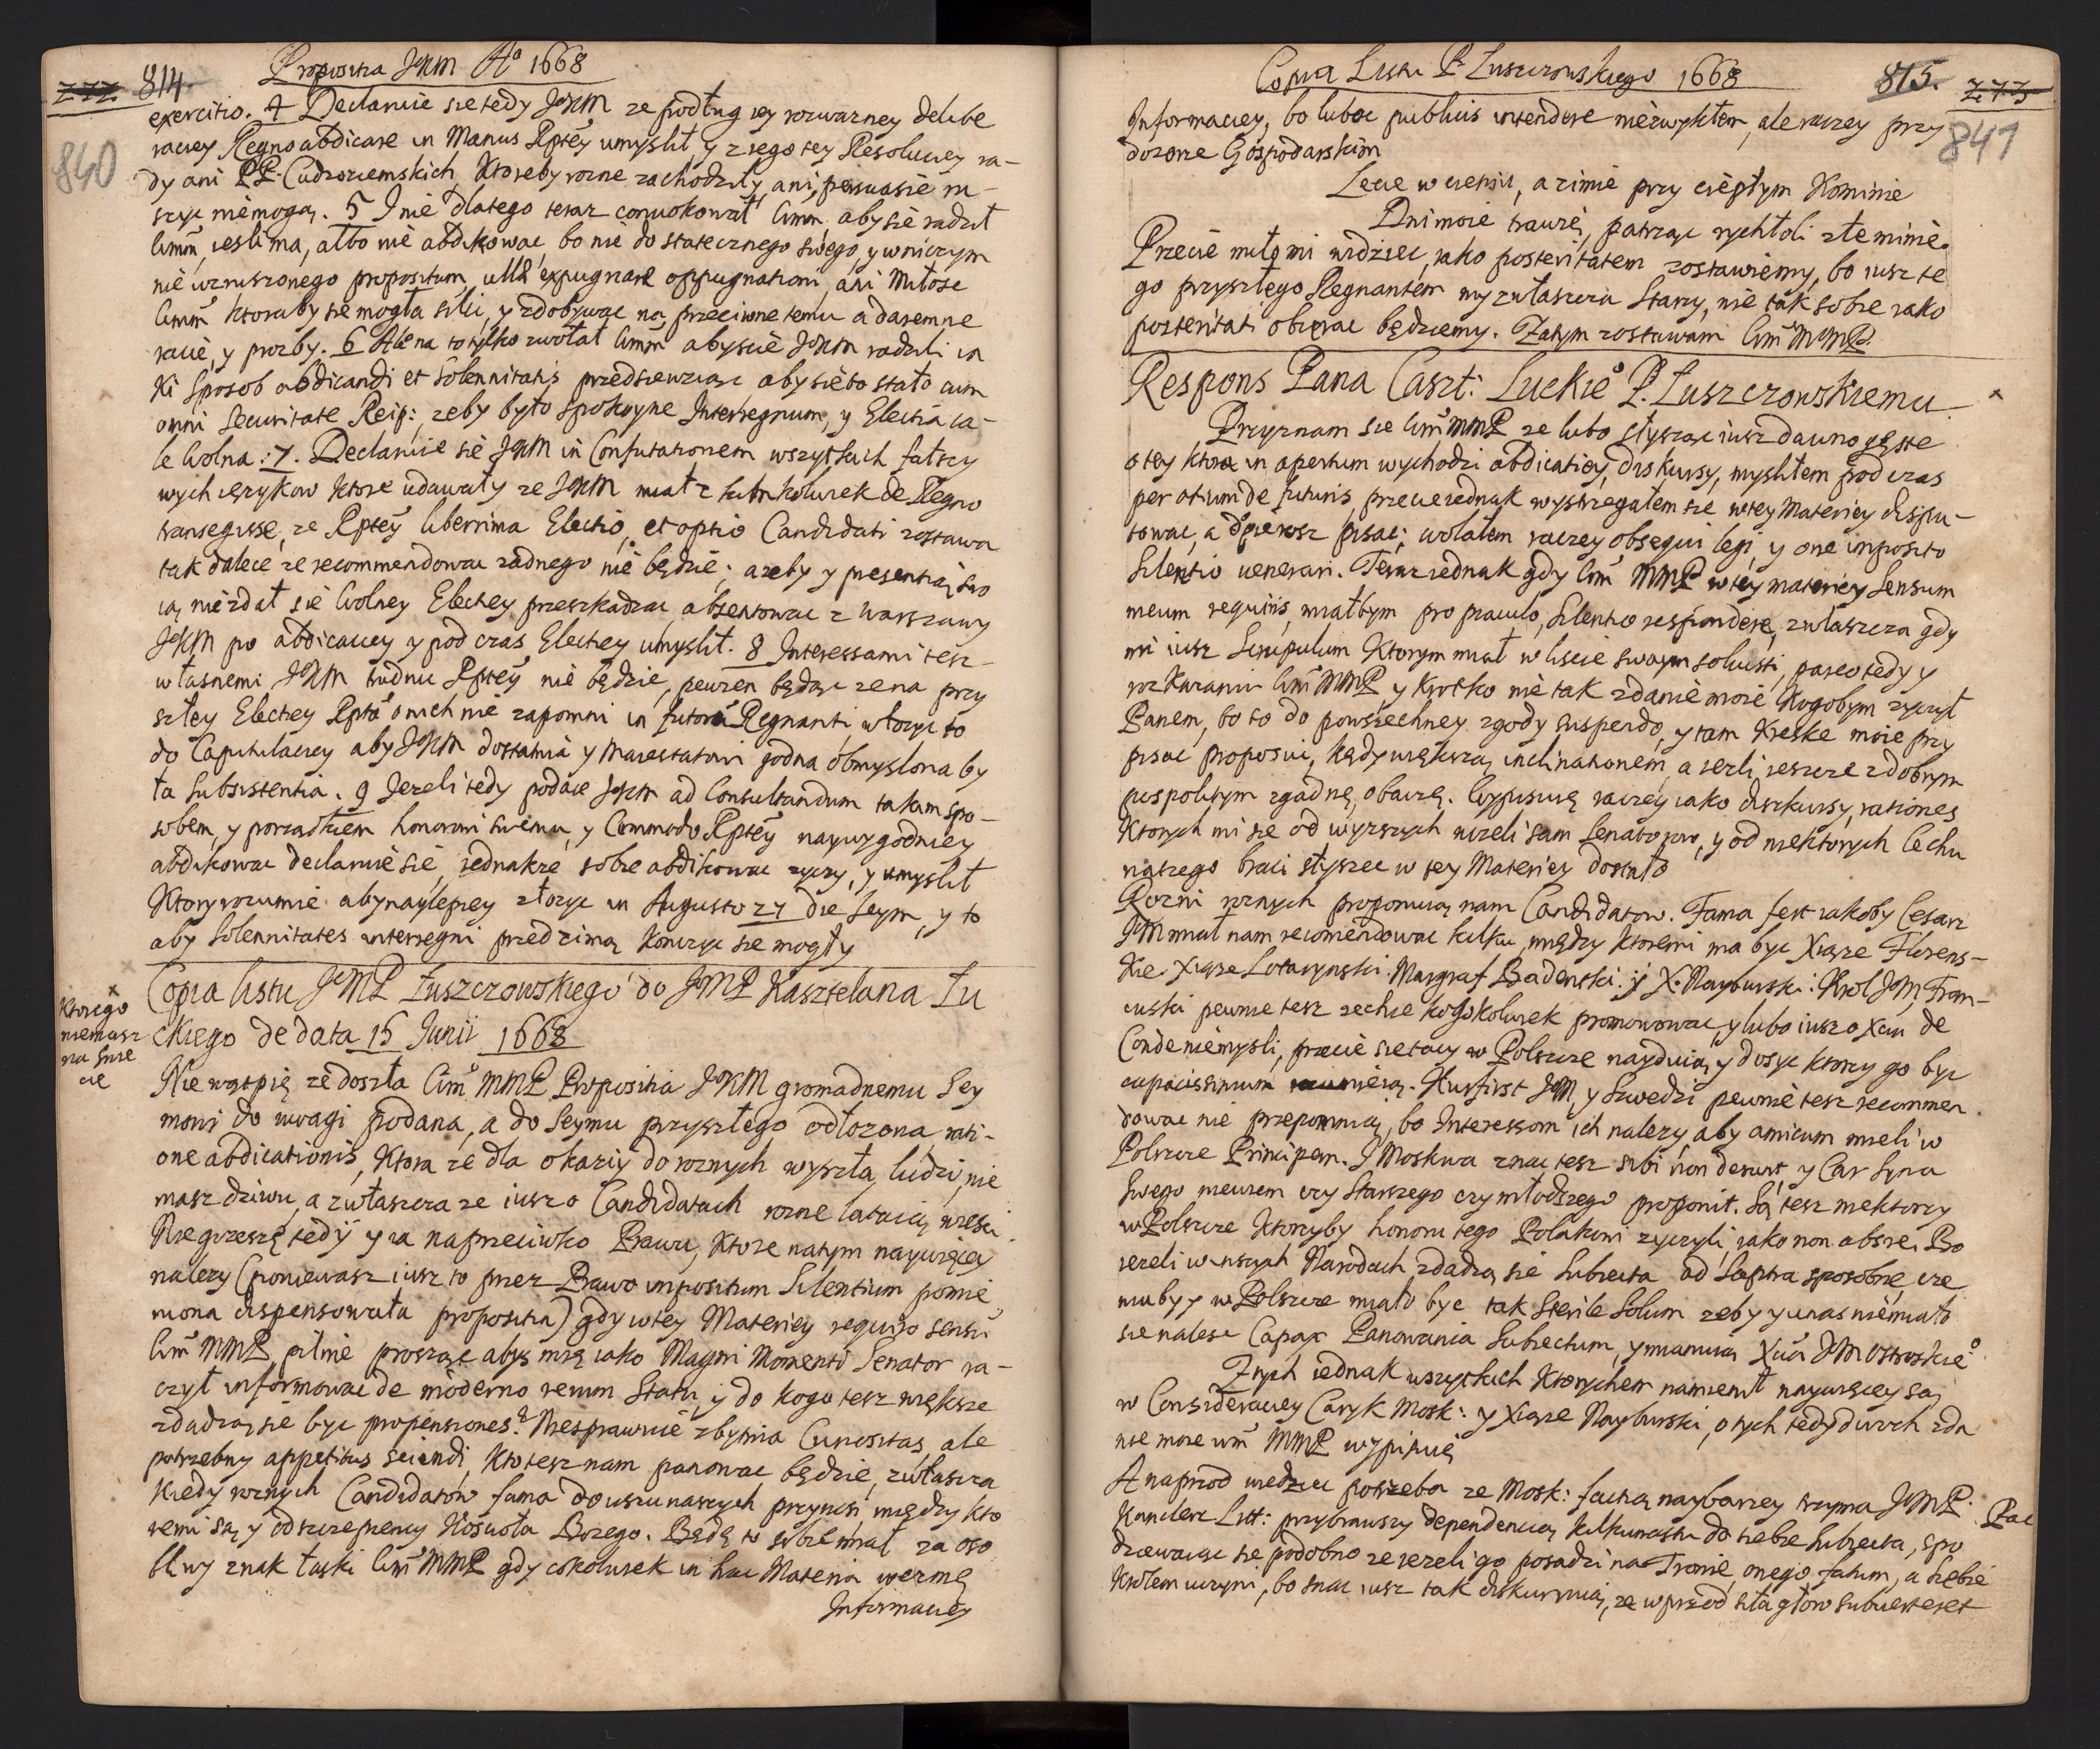 814. Propositia JKM Aº 1668
840
exercitio. 4 Declaruie sie tedy JKM ze podług tey rozwazney delibe
raciey Regno abdicare in Manus Rptey umyslił y z tego tey Resoluciey ra-
dy ani PP. Cudzoziemskich Ktoreby rozne zachodziły, ani persuasie ru-
szyc niemogą. 5 I nie dlatego teraz conuokował aby sie radził
iesli ma, albo nie abdikowac bo nie do statecznego swego, y w niczym
nie wzruszonego propositum, ulla expugnare oppugnationi, ani Miłosc
ktoraby sie mogła silic, y zdobywac na przeciwne temu a daremne
racie, y prozby. 6 Ale na to tylko zwołał abyscie JKM radzili ia
Ki sposob abdicandi et solennitatis przedsiewziąc aby sie to stało cum
omni securitate Reip:, zeby było spokoyne Interregnum, y Electia ca-
le wolna. 7. Declaruie sie JKM in Confutationem wszytkich fałszy
wych ięzykow ktore udawały ze JKM miał z kimkolwiek de Regno
transegisse, ze Rptey liberrima Electio, et optio Candidati zostawa
tak dalece ze recommendowac zadnego nie będzie; a zeby y presentią swo
ią niezdał sie wolney Electiey przeszkadzac, absentowac z Warszawy
JKM po abdicaciey y pod czas Electiey umyslił. 8 Interessami tesz
własnemi JKM trudnic Rptey nie będzie, pewien będąc ze na przy
szłey Electiey Rpta o nich nie zapomni in futura Regnanti, włozyc to
do Capitulaciey aby JKM dostatnia y Maiestatowi godna obmyslona by
ła Subsistentia. 9 Jezeli tedy podaie JKM ad Consultandum takim spo-
sobem, y porządkiem honorowi swemu, y Commodo Rptey naywygodniey
abdikowac declaruie sie, iednakze sobie abdikowac zyczy, y umyslił
Ktory rozumie aby naylepiey złozyc in Augusto 27 die Seym, y to
aby Solennitates interregni przed zimą konczyc sie mogły
Copia listu JMP Łuszczowskiego do JMP Kasztelana Łu
ckiego de data 15 Junii 1668
x
Ktorego
niemasz
na swie
cie
Nie wątpię ze doszła MMP Propositia JKM gromadnemu Sey
mowi do uwagi podana, a do Seymu przyszłego odłozona rati-
one abdicationis, Ktora ze dla okaziy do roznych wyszła ludzi, nie
masz dziwu, a zwłaszcza ze iusz o Candidatach rozne lataią wiesci.
Nie grzeszę tedy y ia naprzeciwko Prawu, Ktore natym naywięcey
nalezy (poniewasz iusz to przez Prawo impositum Silentium pomie
niona dispensowała propositia) gdy w tey Materiey requiro sensu
MMP pilnie prosząc abys mię iako Magni Momenti Senator ra-
czył informowac de moderno rerum Statu, y do kogo tesz większe
zdadzą sie byc propensiones? Niesprawuie zbytnia Curiositas, ale
potrzebny appetitus sciendi, Kto tesz nam panowac będzie, zwłaszcza
Kiedy roznych Candidatow fama do uszu naszych przynosi między kto
remi są, y odszczepiency Kosciola Bozego. Będę to sobie miał za oso
bliwy znak łaski MMP gdy cokolwiek in hac Materia wezmę
Informaciey
Copia Listu P. Łuszczowskiego 1668 815.
841
Informaciey, bo lubo publicis intendere niezwykłem, ale raczey przy
dozorze Gospodarskim
Lecie w cieniu, a zimie przy ciepłym Kominie
Dni moie trawię, patrząc rychłoli złe minie.
Przecie miło mi widziec, iako posteritatem zostawiemy, bo iusz te
go przyszłego Regnantem my zwłaszcza Starzy, nie tak sobie iako
posteritati obierac będziemy. Zatym zostawam MMP.
Respons Pana Caszt: Luckieº P. Łuszczowskiemu x
Przyznam sie MMP ze lubo słysząc iusz dawno gęste
o tey ktora in apertum wychodzi abdicatiey, diskursy, myslilem pod czas
per otium de futuris, przecie iednak wystrzegałem sie w tey Materiey dispu-
towac, a dopierosz pisac; wolałem raczey obsequi legi, y one imposito
Silentio venerari. Teraz iednak gdy MMP w tey materiey Sensum
meum requiris, miałbym pro piaculo, Silentio respondere, zwłaszcza gdy
mi iusz Scrupulum Ktorym miał w liscie swoym soluisti, pareo tedy y
rozkazaniu MMP y Krotko nie tak zdanie moie Kogobym zyczył
Panem, bo to do powszechney zgody suspendo, y tam Kreske moie przy
pisac proposui, kędy większą inclinationem, a iezli ieszcze z dobrym
pospolitym zgadnę, obaczę. Wypisuię raczey iako diszkursy, rationes
Ktorych mi sie od wyzszych nizeli sam Senatorow, y od niektorych Cechu
naszego braci słyszec w tey Materiey dostało
Rozni roznych proponuią nam Candidatow. Fama fert iakoby Cesarz
JM miał nam recomendowac kilku, między ktoremi ma byc Xiąze Florens-
kie. Xiąze Lotarynski. Margraf Badenski. y X. Nayburski: Krol JM Fran-
cuski pewnie tesz zechce kogokolwiek promowowac, y lubo iusz o Xciu de
Conde niemysli, przecie sie tacy w Polszcze nayduią, y dosyc ktorzy go byc
capacissimum mienią. Kurfirst JM, y Szwedzi pewnie tesz recommen
dowac nie przepomnią, bo Interessom ich nalezy, aby amicum mieli w
Polszcze Principem. I Moskwa znac tesz sibi non deerit, y Car Syna
swego nie wiem czy Starszego czy młodszego proponit. Są tesz niektorzy
w Polszcze Ktorzyby honoru tego Polakowi zyczyli, iako non abs re. Bo
iezeli w inszych Narodach zdadzą sie Subiecta ad Sceptra sposobne, cze
muby y w Polszcze miało byc tak Sterile Solum zeby y u nas niemiało
sie nalesc Capax Panowania Subiectum, y mianuią Xcia JM Ostroskieº
Z tych iednak wszytkich Ktorychem namienił naywięcey są
w Consideraciey Caryk Mosk: y Xiąze Nayburski, o tych tedy dwoch zda
nie moie MMP wypisuię
A naprzod wiedziec potrzeba ze Mosk: factią naybarziey trzyma JMP. Pac
Kanclerz Litt: przybrawszy dependencią kilkunastu do siebie Subiecta, spo
dziewaiąc sie podobno ze iezeli go posadzi na Tronie, onego fatum, a Siebie
Krolem uczyni, bo snac iusz tak diskuruią, ze wprzod siła głow